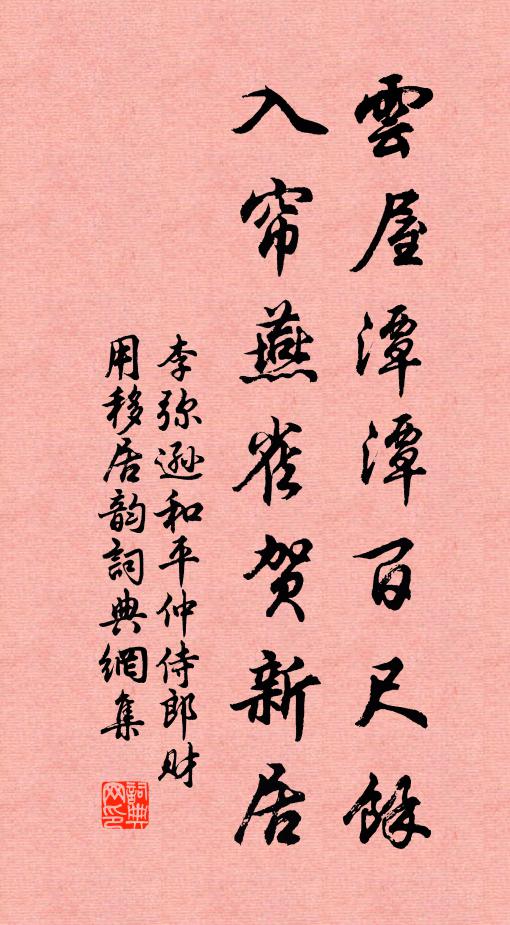 雲屋潭潭百尺餘
入帘燕雀賀新居
李弥遜和平仲侍郎財
用移居韵詞典網集
詞典网印